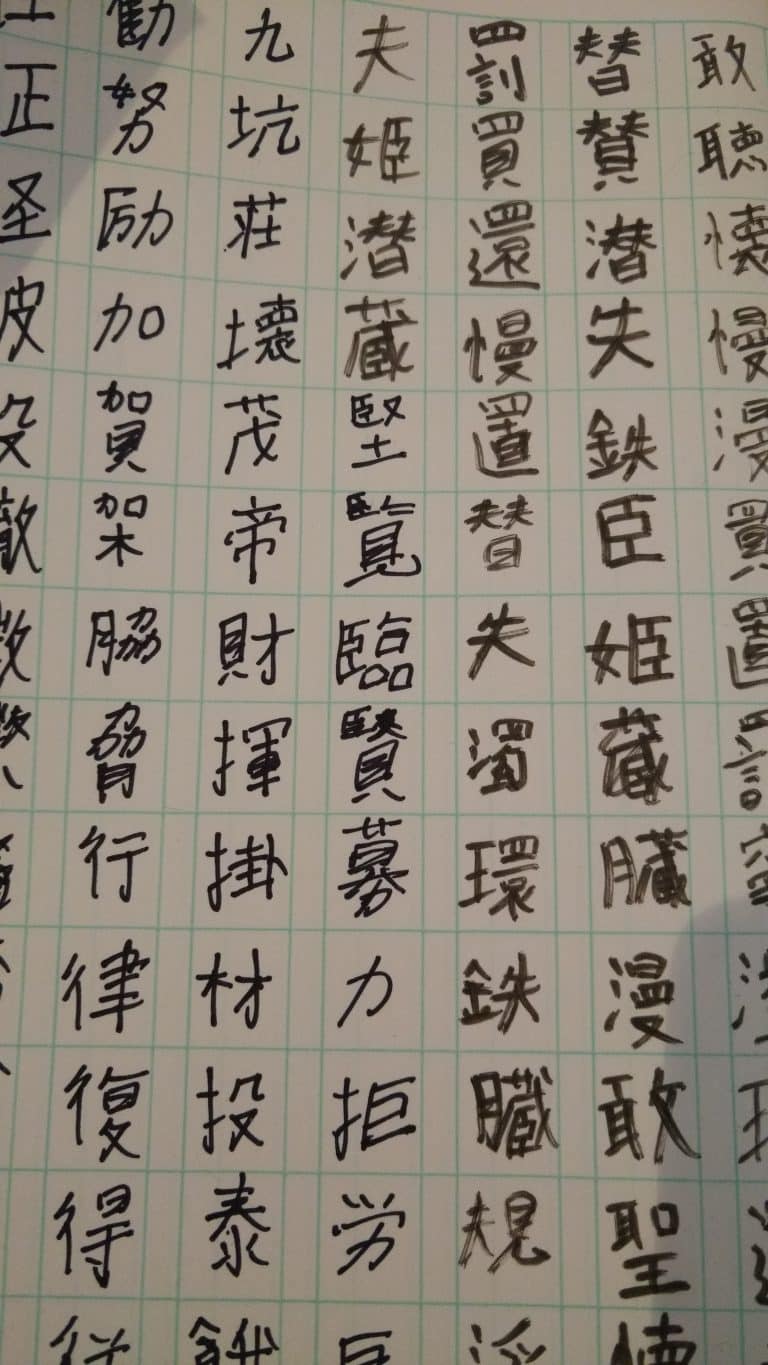 敢聴懐慢漫買置
替賛潜失鉄臣姫蔵臓漫敢聖懐
罰買還慢置替失濁環鉄臓規
夫姫潜蔵堅覧臨賢募力拒労
九坑荘壊茂帝財揮掛材投泰餓
勧努励加賀架脇脅行律復得
正圣皮殳